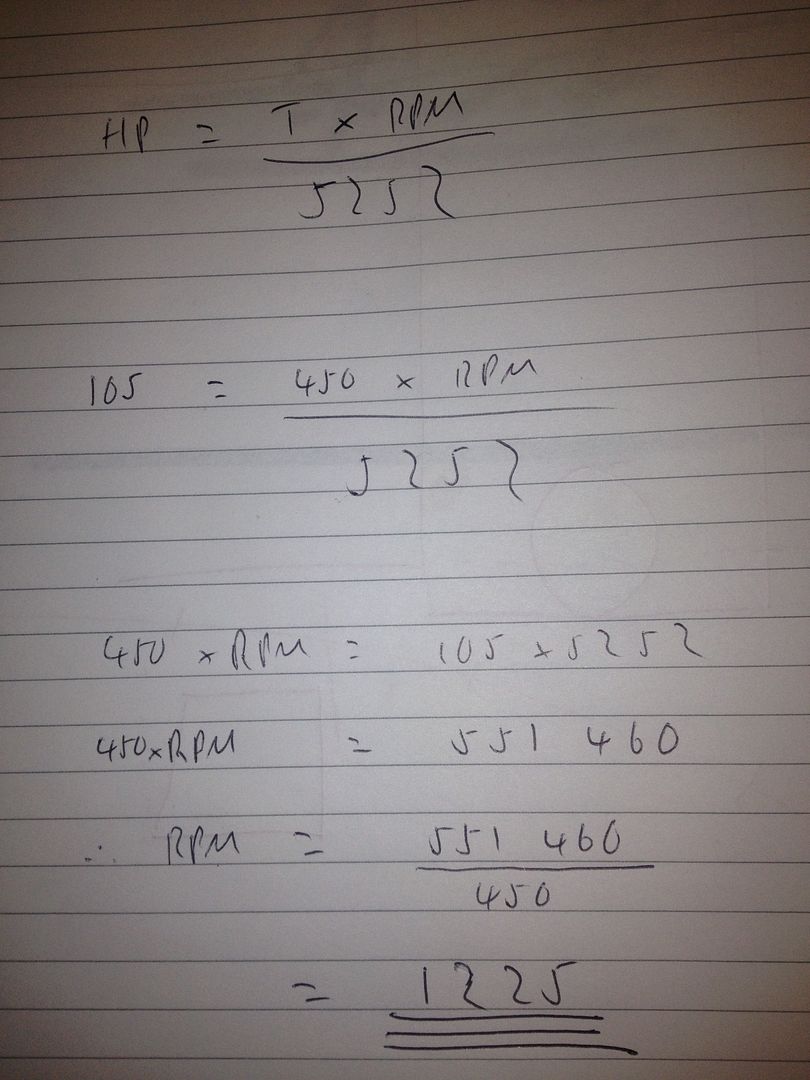 HP = T x RPM
5252
105 = 450 x RPM
5252
450 x RPM = 105 x 5252
450xRPM = 551 460
∴ RPM = 551 460
450
= 1225